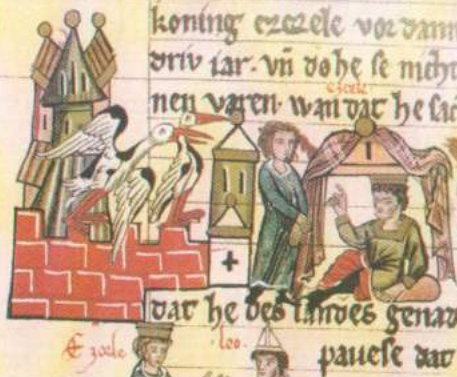 koning ezezele vor dann
driv iar · vn̄ do he se nicht
nen varen · wan dat he sic
ezcele
dat he des landes genad
Ezcele
· leo ·
pauese dat